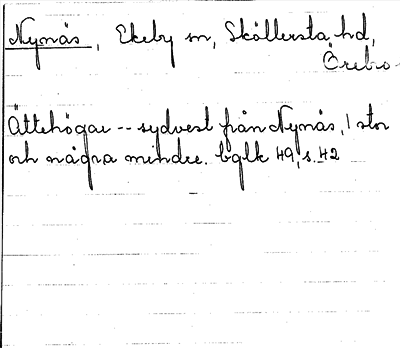 Nynäs, Ekeby sn, Sköllersta hd,
Örebro
Ättehögar -- sydvest från Nynäs, 1 stor
och några mindre. bglk 49, s. 42